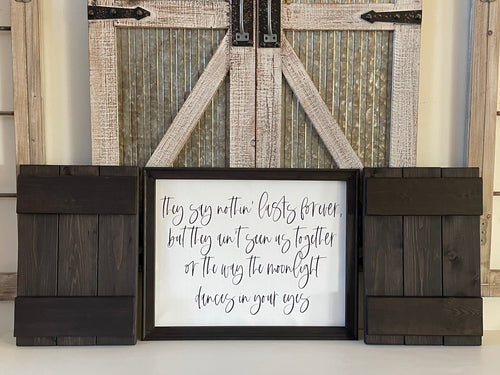 they say nothin' lasts forever,
but they ain't seen us together
or the way the moonlight
dances in your eyes